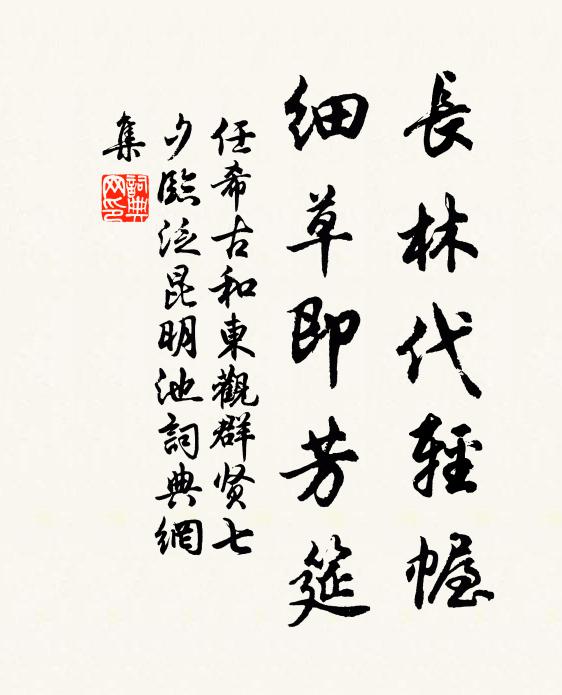 長林代輕幄
細草即芳筵
任希古和東觀群贤七
夕臨泛昆明池詞典網
集
詞典
网印